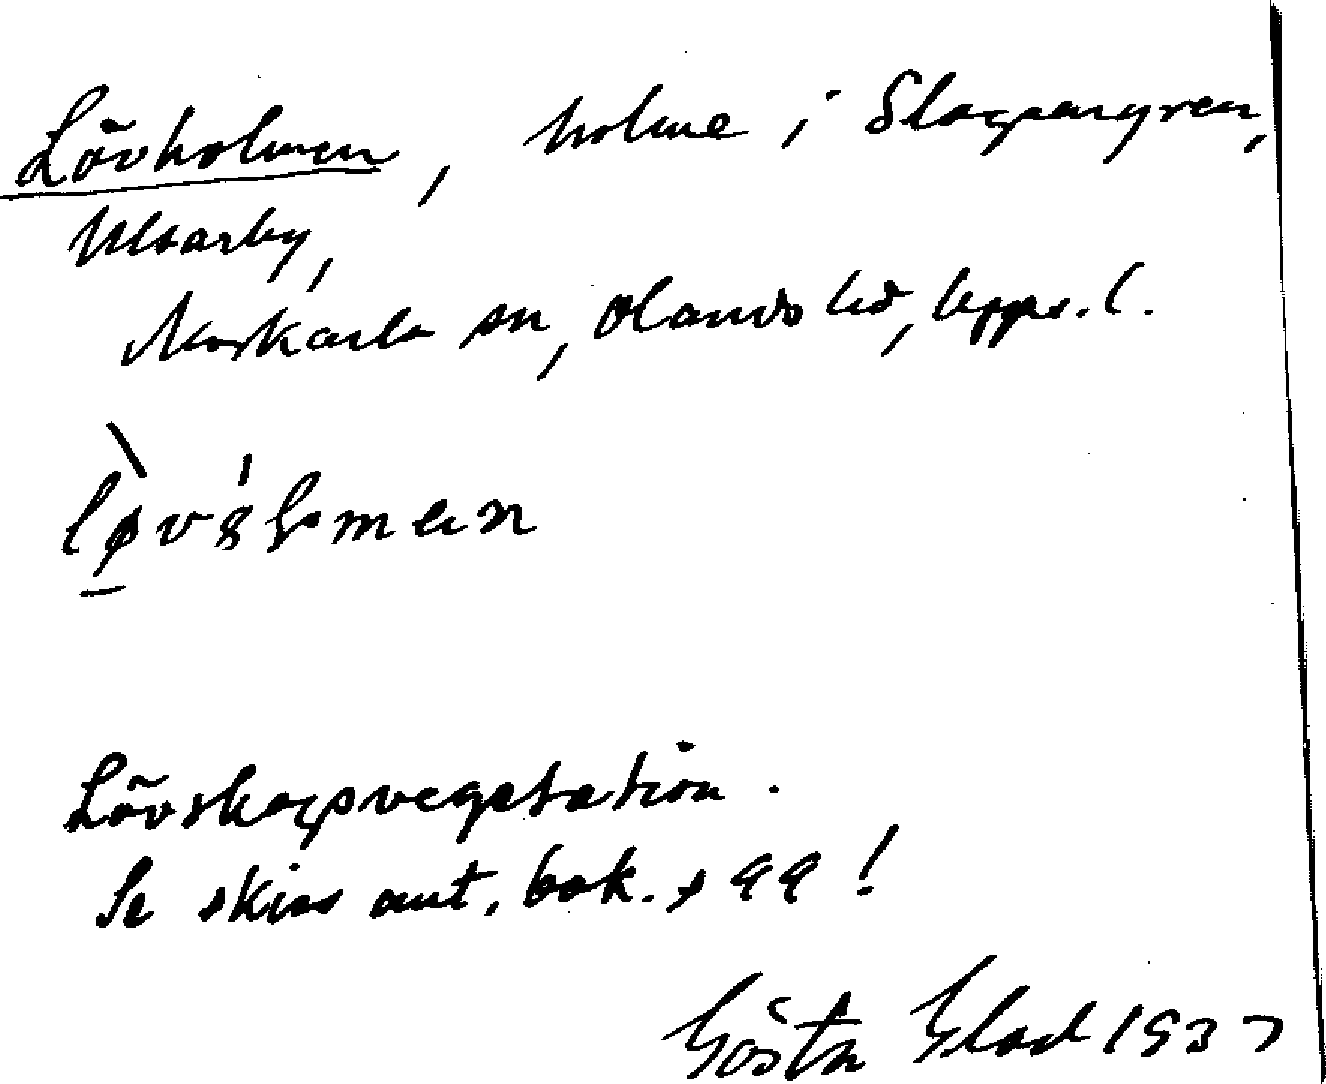 Lövholmen, holme i Slagsängren,
Ulvarby,
Morkarla sn, Olands hd, Upps. l.
Lövskogsvegetation.
Se skiss ant. bok. s 99!
Gösta Glad 1937